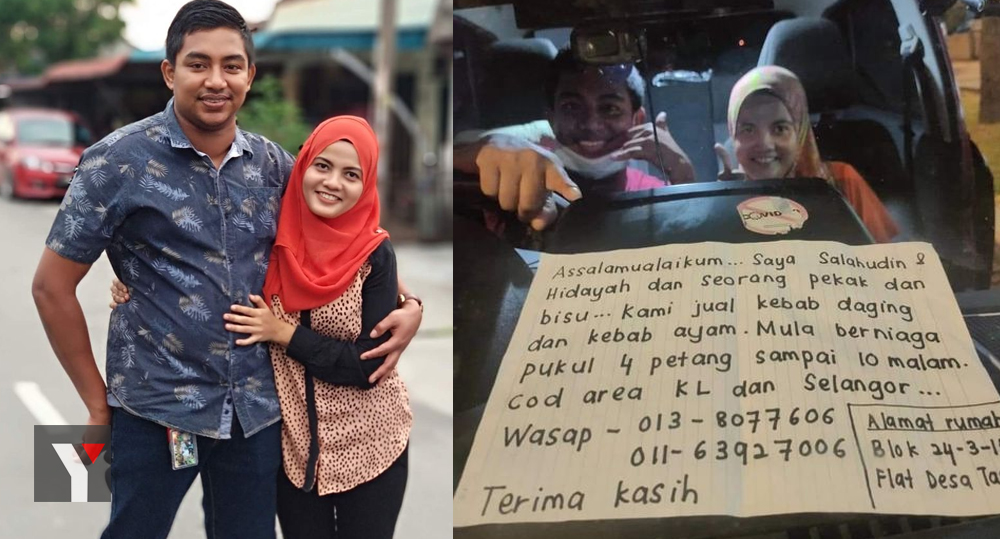 COVID
Assalamualaikum... Saya Salahudin &
Hidayah dan seorang pekak dan
bisu... Kami jual kebab daging
dan kebab ayam. Mula berniaga
pukul 4 petang sampai 10 malam.
Cod area KL dan Selangor...
Wasap - 013 - 8077606
011- 63927006
Alamat rumah
Blok 24-3-1
Flat Desa Ta
Terima kasih
Y